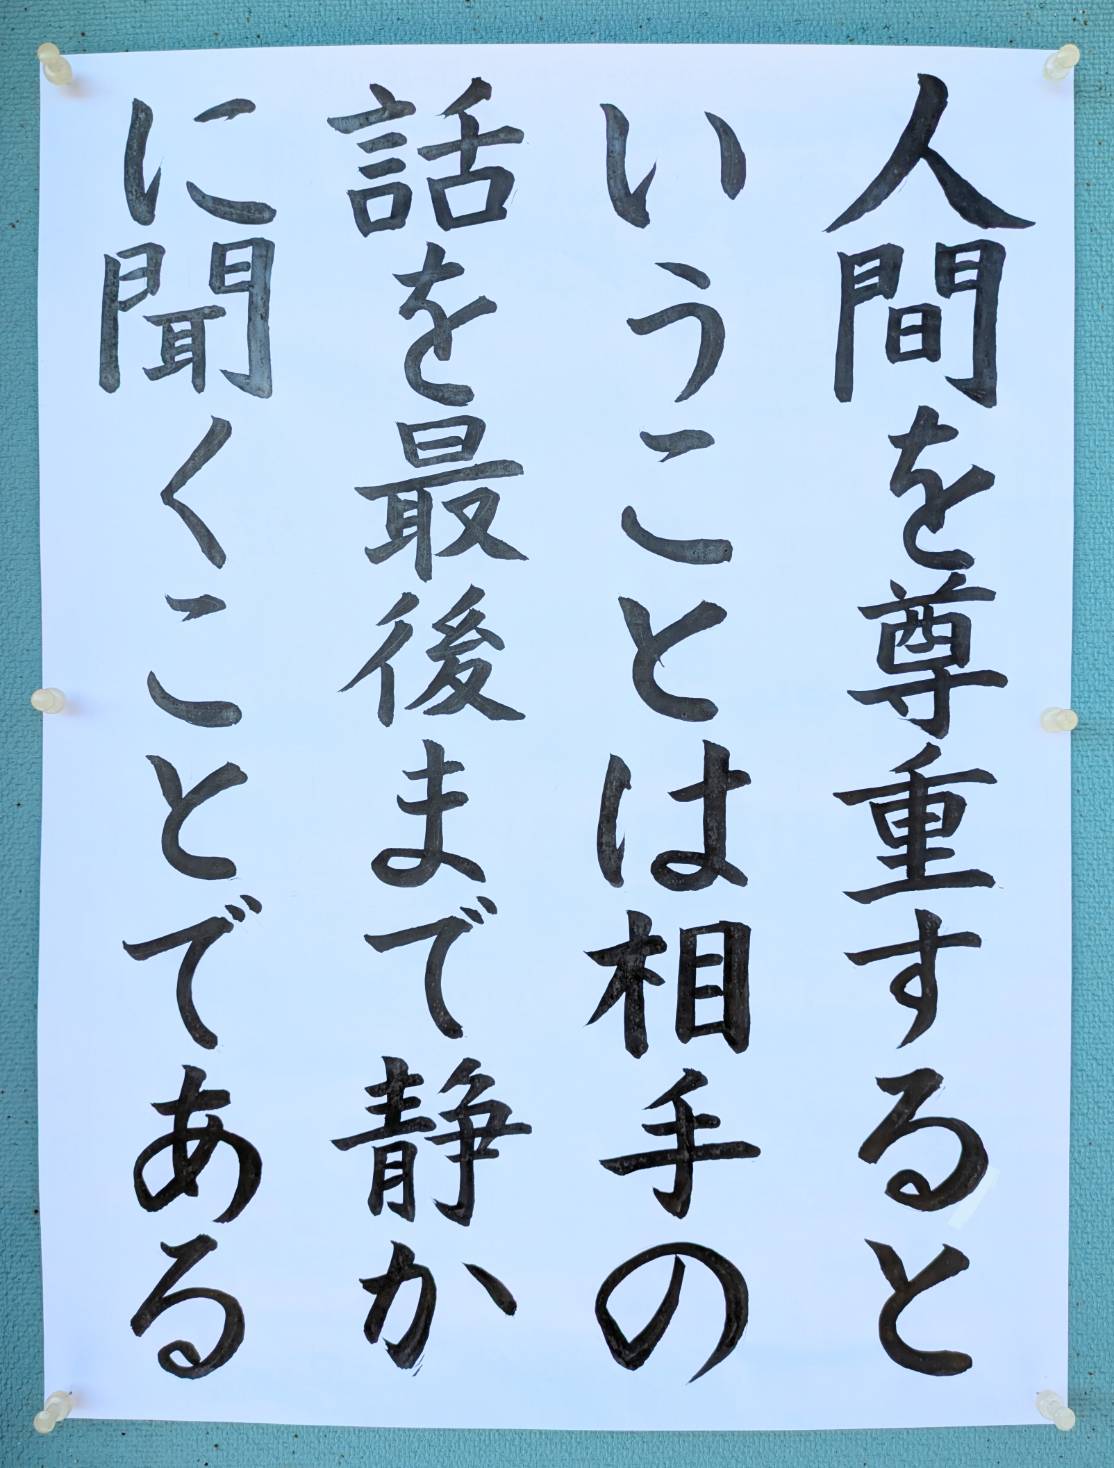 人間を尊重すると
いうことは相手の
話を最後まで静か
に聞くことである